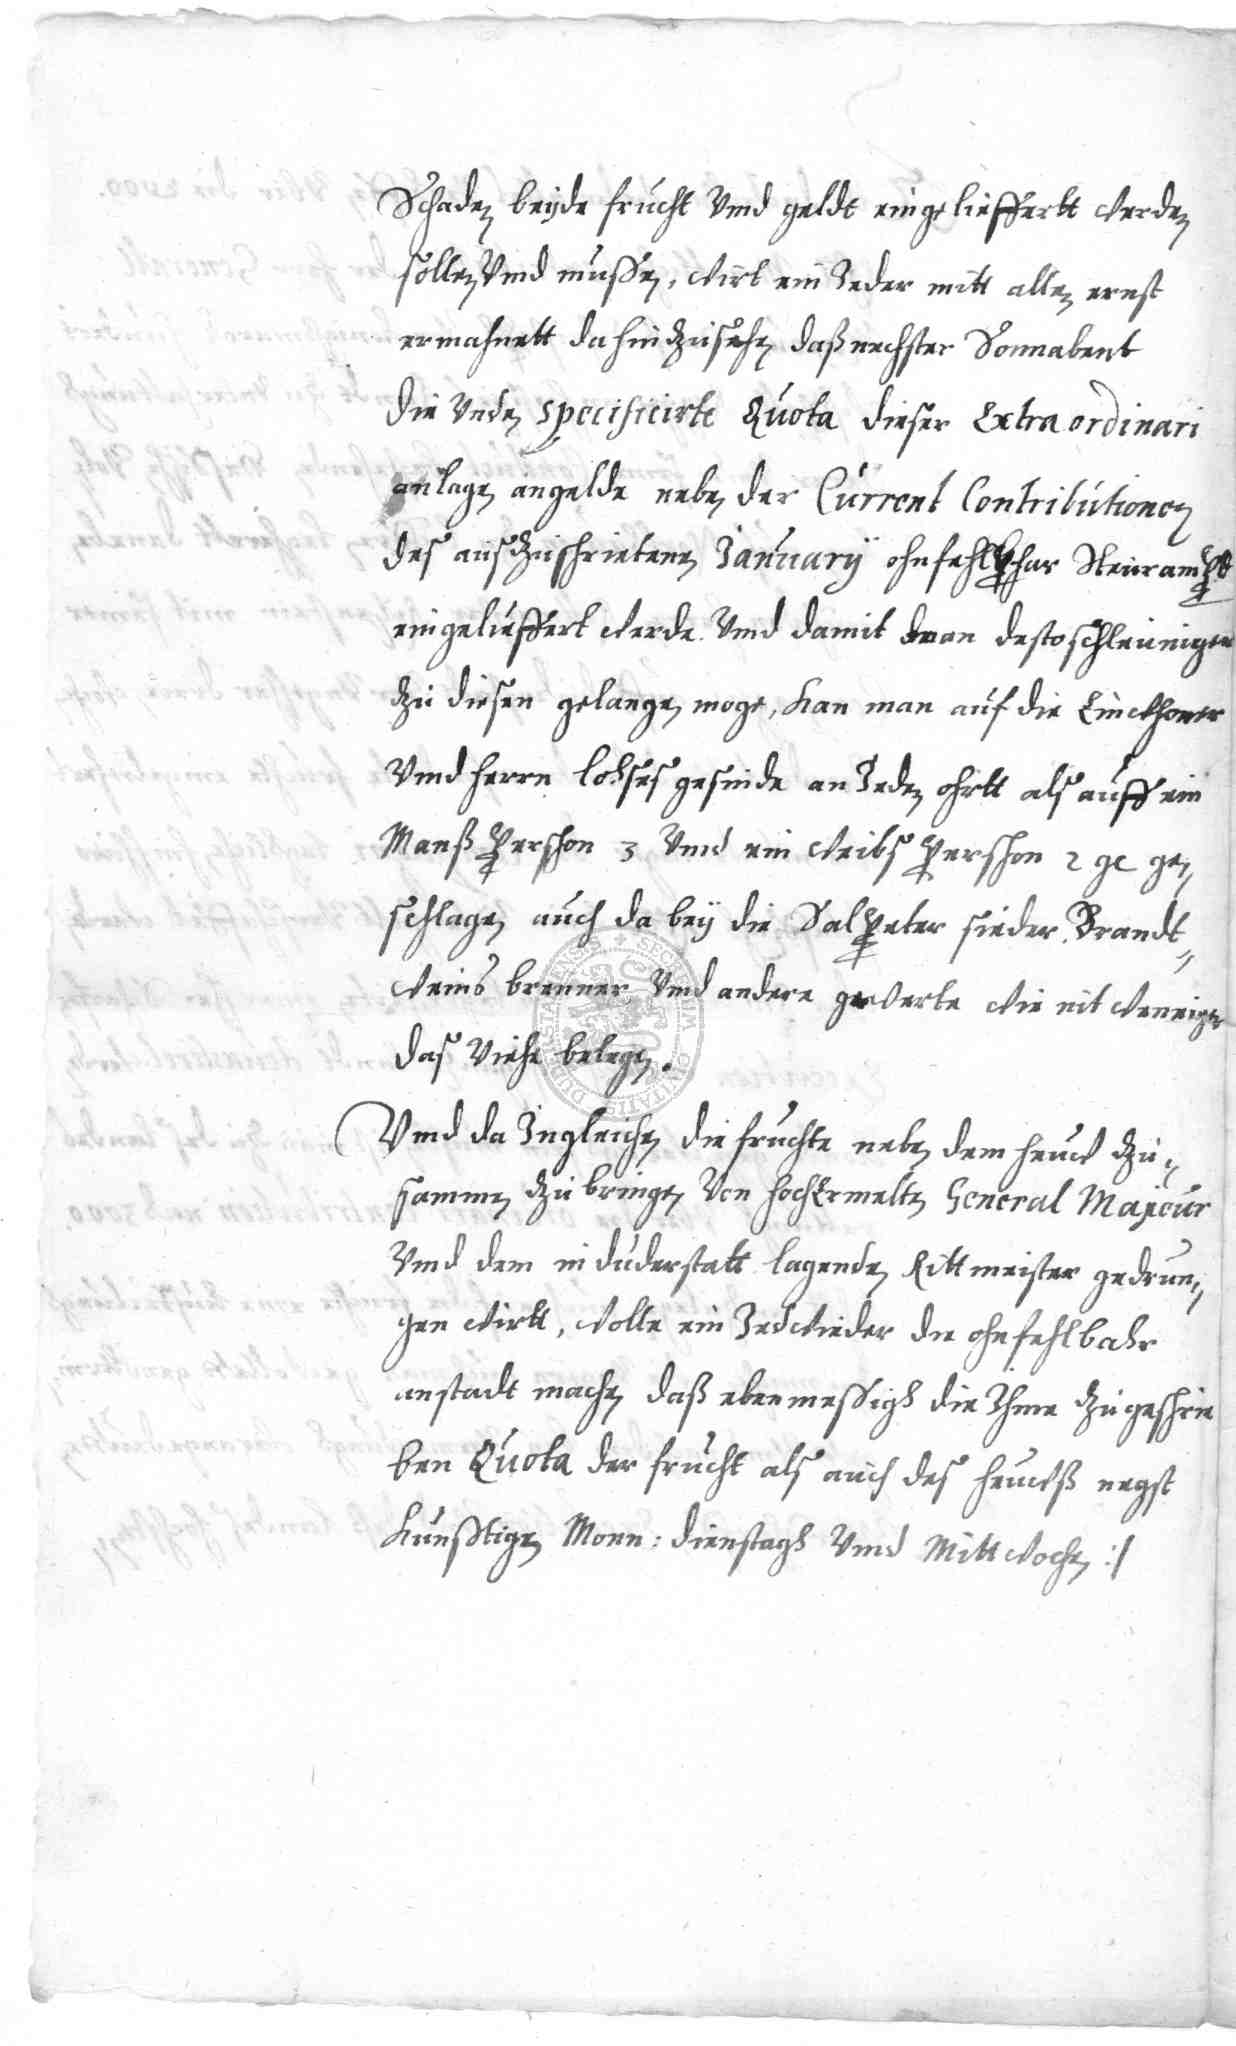 Schaden beyde frucht Vnd geldt eingelieffertt werden
sollen Vnd mussen, wirt ein Jeder mitt allen ernst
ermahnett dahin zusehen daß nechster Sonnabent
die Vnden specificirte Quota dieser Extraordinari
anlagen angelde neben der Current Contributionen
des ausdzuschriebenen January ohnfehlbar
eingelieffert werde Vnd damit man desto schleuniger
dzu diesen gelangen moge, kan man auf die Einwhoner
Vnd herrn loses gesinde an Jeden ohrtt als auff ein
Manß Pershon 3 Vnd ein weibs Pershon 2 gc ge,
schlagen auch dabey die SalPeter sieder Brandt,
weins brenner Vnd andere gewerke wie nit weniger
das Viehe belegen.
Vnd da Ingleichen die fruchte neben dem heuw dzu,
sammen dzu bringen Von hochErmelten General Majeur
Vnd dem in duderstatt lagenden Rittmeister gedrun,
gen wirtt, wolle ein Jedwieder die ohnfehlbahr
anstadt machen daß ebenmessigh die Ihme dzugeschrie
ben Quota der frucht als auch des heuwß negst
kunfftigen Monn: dienstagh Vnd Mittwochen :/
SECRETUM CIVITATIS DUDERSTADENSIS